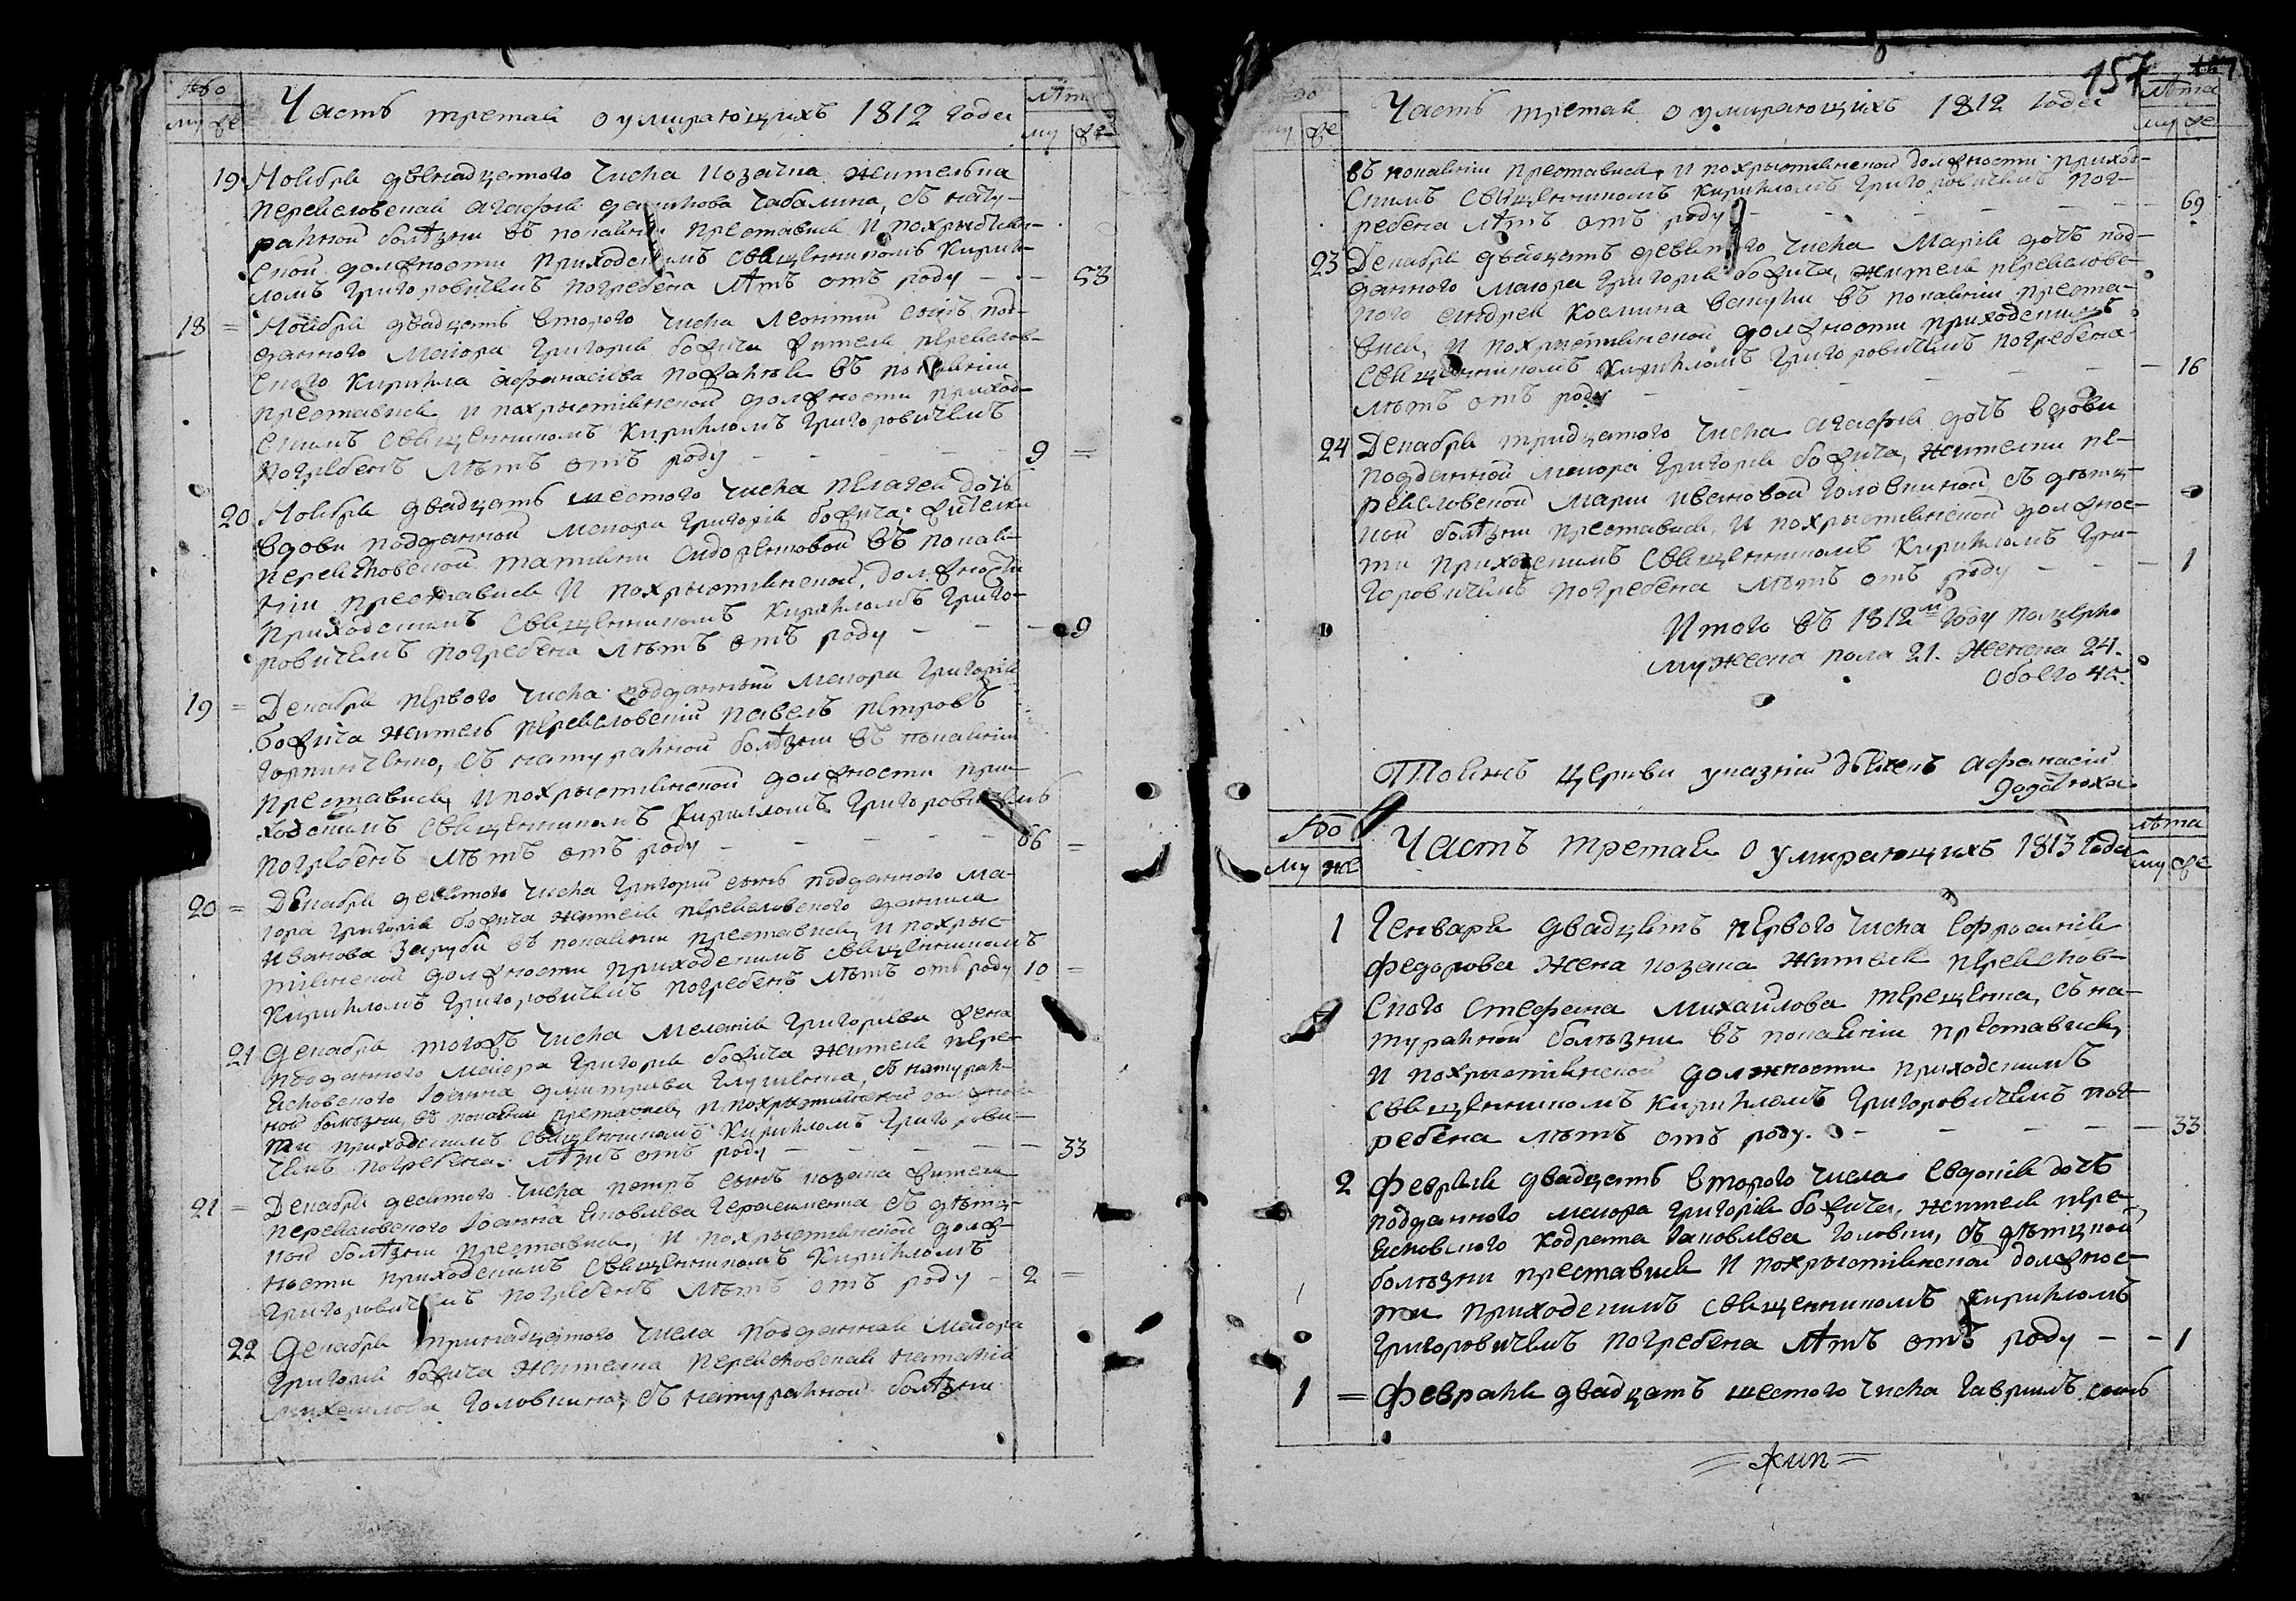 Часть третая о умирающихъ 1812 года
му же
лѣта
му же
19 Ноября двенадцатого числа козачка жителька
переяловская Агафия Чабалина, съ нату-
ралной болѣзни въ покаянии преставися и похрыстиян-
ской должности приходскимъ священникомъ Кирил-
ломъ Григоровичемъ погребена лѣтъ отъ роду — — 53
18 = Ноября двадцать второго числа Леонтий сынъ под-
данного Маиора Григория Божича жителя
Кирилла Афанасиева въ покаянии
преставися и похрыстиянской должности приход-
скимъ священникомъ Кирилломъ Григоровичемъ
погребенъ лѣтъ отъ роду — — — — 9 =
20 Ноября двадцать шестого числа Пелагея дочь
вдови подданной Маиора Григория Божича жителки
Татияни въ покая-
нии преставися и похрыстиянской должности
приходскимъ священникомъ Кирилломъ Григо-
ровичемъ погребена лѣтъ отъ роду — — — 9
19 = Декабря первого числа подданный Маиора Григория
Божича житель Павелъ Петровъ
съ натуралной болѣзни въ покаянии
преставися, и похрыстиянской должности при-
ходскимъ священникомъ Кирилломъ Григоровичемъ
погребенъ лѣтъ отъ роду — — — — 66 =
20 = Декабря девятого числа Григорий сынъ подданного Ма-
иора Григория Божича жителя Данила
Иванова Заруби въ покаянии преставися, и похрыс-
тиянской должности приходскимъ священникомъ
Кирилломъ Григоровичемъ погребенъ лѣтъ отъ роду 10 =
21 Декабря тогожъ числа Мелания Григориева жена
подданного Маиора Григория Божича жителя пере-
ясловского Иоанна Дмитриева съ натурал-
ной болѣзни, въ покаянии преставися, и похрыстиянской должнос-
ти приходскимъ священникомъ Кирилломъ Григорови-
чемъ погребена лѣтъ отъ роду — — — — 33
21 = Декабря десятого числа Петръ сынъ козака жителя
Иоанна Яковлева Герасименка съ дѣтц-
кой болѣзни преставися, и похрыстиянской долж-
ности приходскимъ священникомъ Кирилломъ
Григоровичемъ погребенъ лѣтъ отъ роду — 2 =
22 Декабря тринадцатого числа подданная Маиора
Григория Божича жителка Наталия
Михайлова Головкина, съ натуралной болѣзни
157
Часть третая о умирающихъ 1812 года
же
лѣта
му же
въ покаянии преставися, и похрыстиянской должности приход-
скимъ священникомъ Кирилломъ Григоровичемъ пог-
ребена лѣтъ отъ роду — — — — 69
23 Декабря двадцать девятого числа Мария дочь под-
данного Маиора Григория Божича, жителя переялов-
ского Андрея Космина въ покаянии преста-
вися, и похрыстиянской должности приходскимъ
священникомъ Кирилломъ Григоровичемъ погребена
лѣтъ отъ роду — — — — — 16
24 Декабря тридцатого числа Агафия дочь вдови
подданной Маиора Григория Божича, жителки пе-
реясловской Марии Ивановой Головкиной съ дѣтц-
кой болѣзни преставися, и похрыстиянской должнос-
ти приходскимъ священникомъ Кирилломъ Гри-
горовичемъ погребена лѣтъ отъ роду — — — 1
Итого въ 1812м году померло
мужеска пола 21. женска 24.
обоего 45.
Тоеяжъ церкви указний дьячокъ Афанасий
му же
Часть третая о умирающихъ 1813 года
лѣта
му же
1 Генваря двадцать первого числа Ефросиния
Федорова жена козака жителя
Стефана Михайлова Терещенка, съ на-
туралной болѣзни въ покаянии преставися,
и похрыстиянской должности приходскимъ
священникомъ Кирилломъ Григоровичемъ пог-
ребена лѣтъ отъ роду. — — — — 33
2 Февраля двадцать второго числа Евдокия дочь
подданного Маиора Григория Божича, жителя пере-
ясловского Кодрата Иаковлева Головки, съ дѣтцкой
болѣзни преставися и похрыстиянской должнос-
ти приходскимъ священникомъ Кирилломъ
Григоровичемъ погребена лѣтъ отъ роду — — 1
1 = Февраля двадцать шестого числа Гавриилъ сынъ